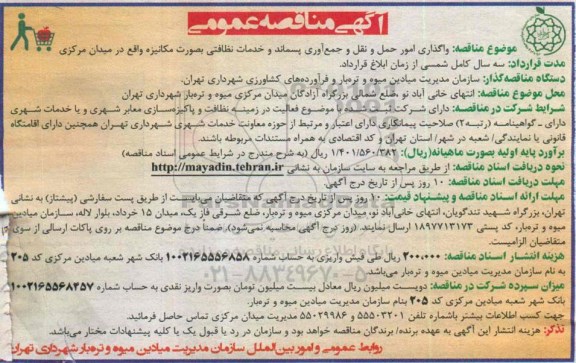 آگهی مناقصه عمومی
موضوع مناقصه: واگذاری امور حمل و نقل و جمع‌آوری پسماند و خدمات نظافتی بصورت مکانیزه واقع در میدان مرکزی
مدت قرارداد: سه سال کامل شمسی از زمان ابلاغ قرارداد.
دستگاه مناقصه‌گذار: سازمان مدیریت میادین میوه و تره‌بار و فرآورده‌های کشاورزی شهرداری تهران.
محل موضوع مناقصه: انتهای خانی آباد نو ضلع شمالی بزرگراه آزادگان میدان مرکزی میوه و تره‌بار شهرداری تهران
شرایط شرکت در مناقصه: دارای شرکت با موضوع فعالیت در زمینه نظافت و پاکیزه‌سازی معابر شهری و یا خدمات شهری
دارای ـ گواهینامه (رتبه ۲) صلاحیت پیمانکاری دارای اعتبار و مرتبط از حوزه معاونت خدمات شهری شهرداری تهران همچنین دارای اقامتگاه
قانونی یا نمایندگی/ شعبه در شهر/ استان تهران و کد اقتصادی به همراه مستندات مربوطه باشند.
برآورد پایه اولیه بصورت ماهیانه(ریال): ۱/۴۰۱/۵۶۰/۳۸۲ ریال (به شرح مندرج در شرایط عمومی اسناد مناقصه)
نحوه دریافت اسناد مناقصه: از طریق مراجعه به سایت سازمان به نشانی http://mayadin.tehran.ir
مهلت دریافت اسناد مناقصه: ۱۰ روز پس از تاریخ درج آگهی.
مهلت ارائه اسناد مناقصه و پیشنهاد قیمت: ۱۰ روز پس از تاریخ درج آگهی که متقاضیان می‌بایست از طریق پست سفارشی (پیشتاز) به نشانی
تهران، بزرگراه شهید تندگویان، انتهای خانی‌آباد نو، میدان مرکزی میوه و تره‌بار، ضلع شرقی فاز یک، میدان ۱۵ خرداد، بلوار لاله، سازمان میادین
میوه و تره‌بار، کد پستی ۱۸۹۷۷۱۳۱۷۳ ارسال نمایند. (روز درج آگهی محاسبه نمی‌شود). ضمنا درج موضوع مناقصه بر روی پاکات ارسالی از سوی
متقاضیان الزامیست.
هزینه انتشار اسناد مناقصه: ۲۰۰.۰۰۰ ریال طی فیش واریزی به حساب شماره ۱۰۰۲۱۶۵۵۵۶۸۵۸ بانک شهر شعبه میادین مرکزی کد ۲۰۵
به نام سازمان مدیریت میادین میوه و تره‌بار می‌باشد.
میزان سپرده شرکت در مناقصه: دویست میلیون ریال معادل بیست میلیون تومان بصورت واریز نقدی به حساب شماره ۱۰۰۲۱۶۵۵۶۸۴۵۷
بانک شهر شعبه میادین مرکزی کد ۲۰۵ بنام سازمان مدیریت میادین میوه و تره‌بار.
جهت کسب اطلاعات بیشتر باشماره تلفن ۵۵۵۰۳۲۰۱ و ۵۵۰۲۹۹۸۶ مدیریت میدان مرکزی تماس حاصل فرمائید.
تذکر: هزینه انتشار این آگهی به عهده برنده/ برندگان مناقصه خواهد بود و سازمان در رد یا قبول یک یا کلیه پیشنهادات مختار می‌باشد.
روابط عمومی و امور بین‌الملل سازمان مدیریت میادین میوه و تره‌بار شهرداری تهران